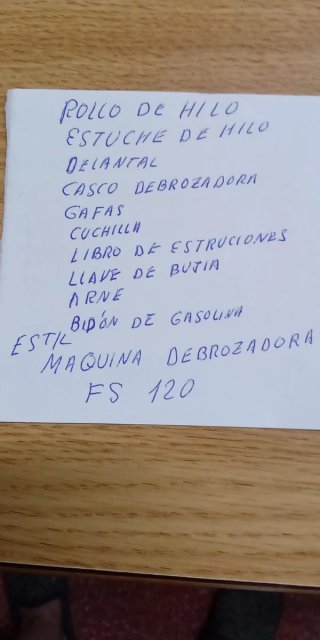 ROLLO DE HILO
ESTUCHE DE HILO
DELANTAL
CASCO DEBROZADORA
GAFAS
CUCHILLA
LIBRO DE ESTRUCIONES
LLAVE DE BUJIA
ARNE
BIDÓN DE GASOLINA
ESTIL
MAQUINA DEBROZADORA
FS 120